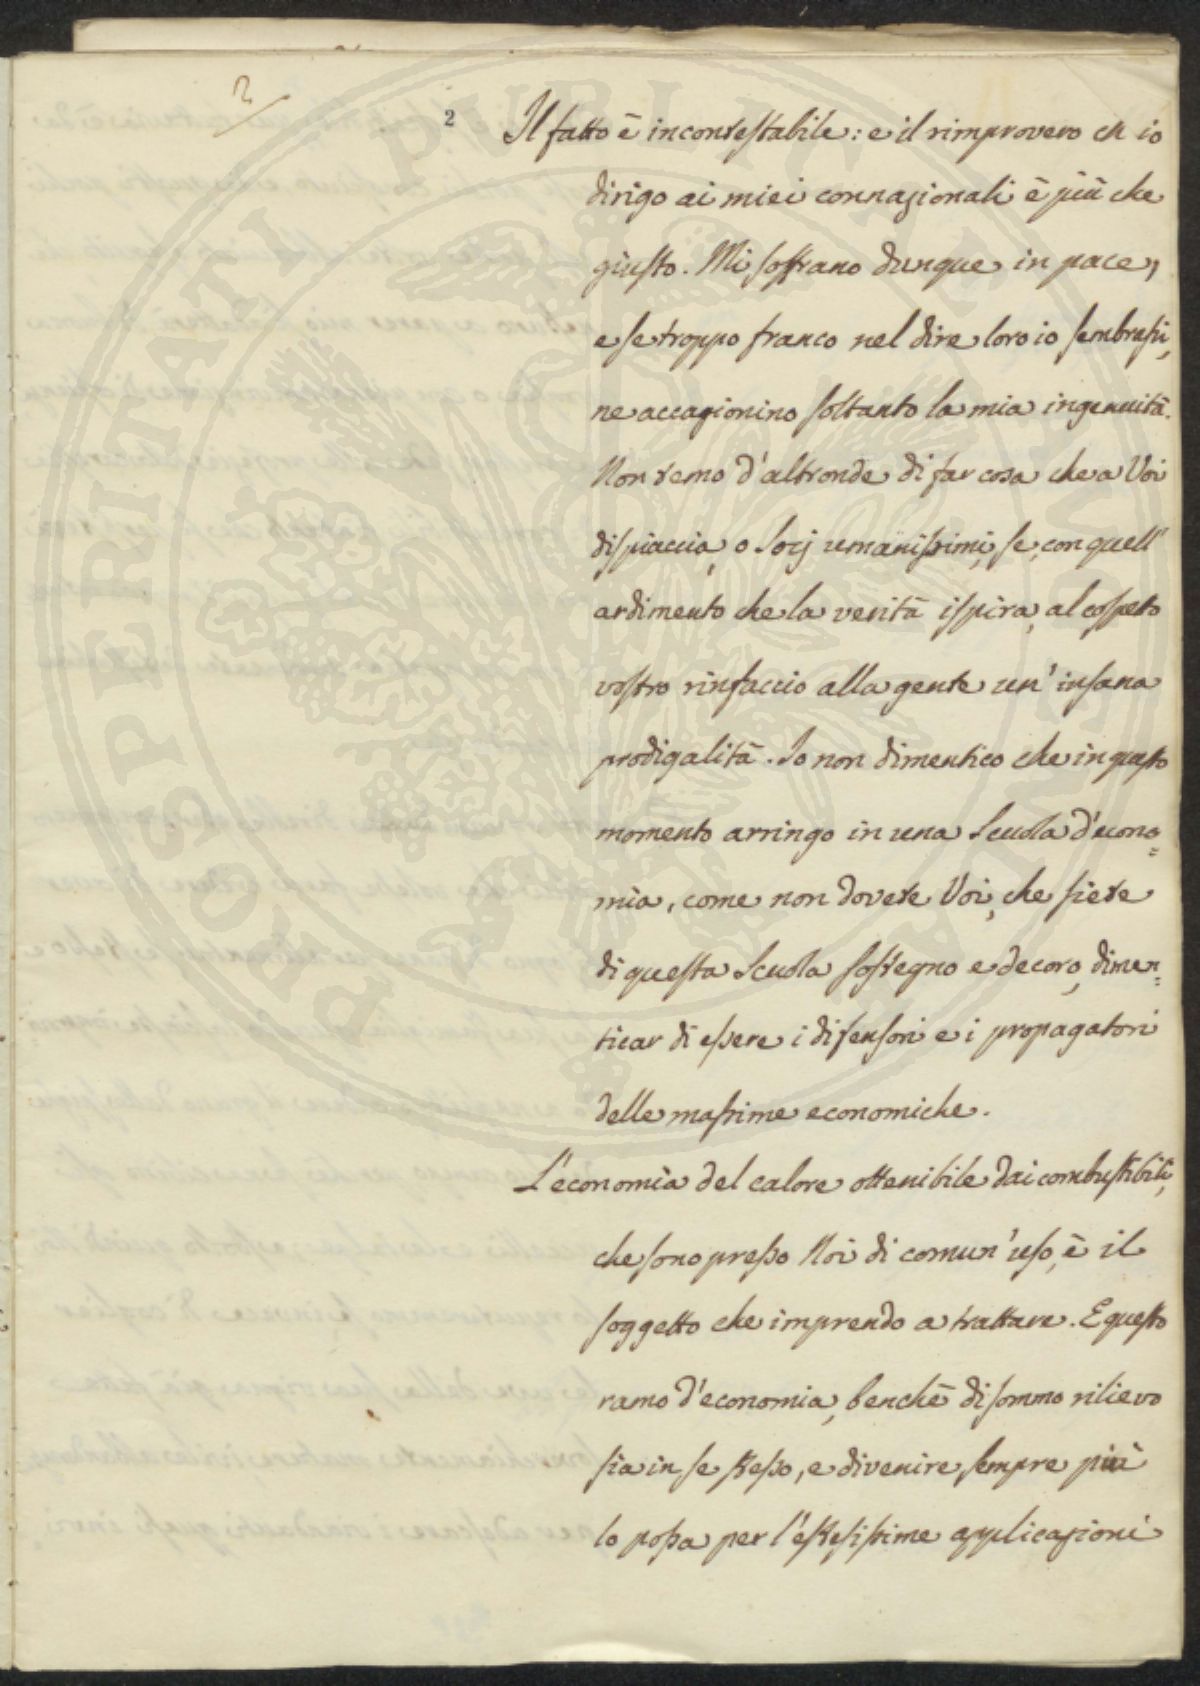 2/
2
Il fatto è incontestabile: e il rimprovero ch io
dirigo ai miei connazionali è più che
giusto. Mi soffrano dunque in pace,
e se troppo franco nel dire loro io sembrassi,
ne accagionino soltanto la mia ingenuità.
Non temo d'altronde di far cosa che a Voi
dispiaccia, o Socj umanissimi, se, con quell'
ardimento che la verità ispira, al cospetto
vostro rinfaccio alla gente un' insana
prodigalità. Io non dimentico che in questo
momento arringo in una Scuola d'econo=
mia, come non dovete Voi, che siete
di questa Scuola sostegno e decoro, dimen=
ticar di essere i difensori e i propagatori
delle massime economiche.
L'economia del calore ottenibile dai combustibili,
che sono presso Noi di comun' uso, è il
soggetto che imprendo a trattare. E questo
ramo d'economia, benchè di sommo rilievo
sia in se stesso, e divenire sempre più
lo possa per l'estesissime applicazioni
PROSPERITATI PUBLICAE AUGENDAE